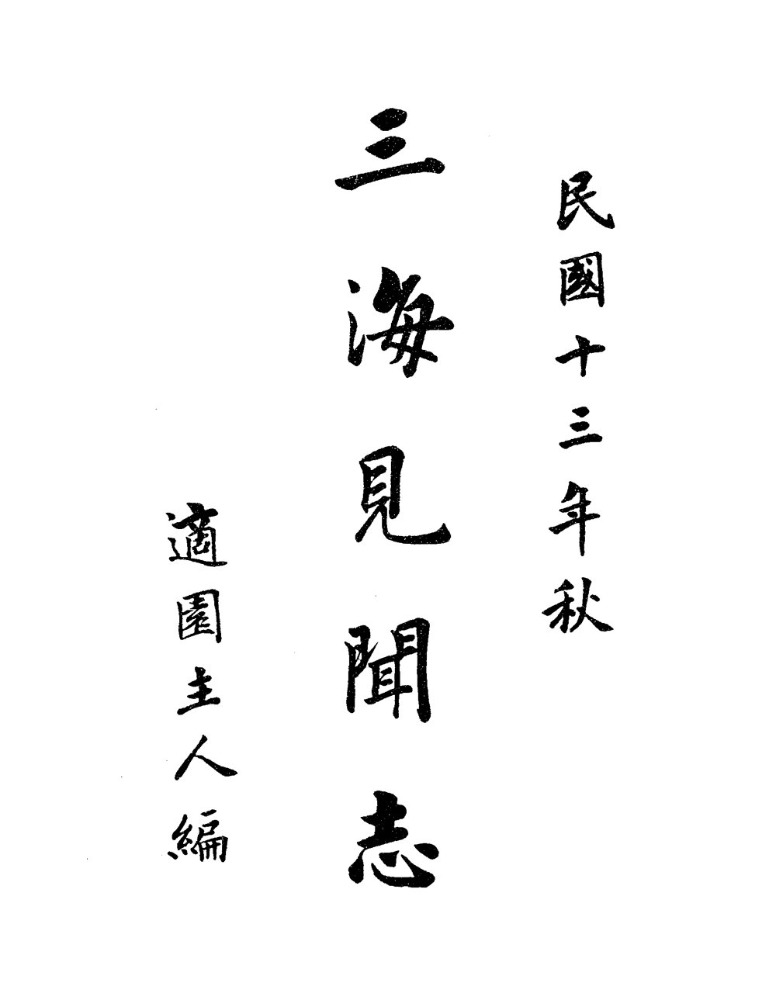 民國十三年秋
三海見聞志
適園主人編